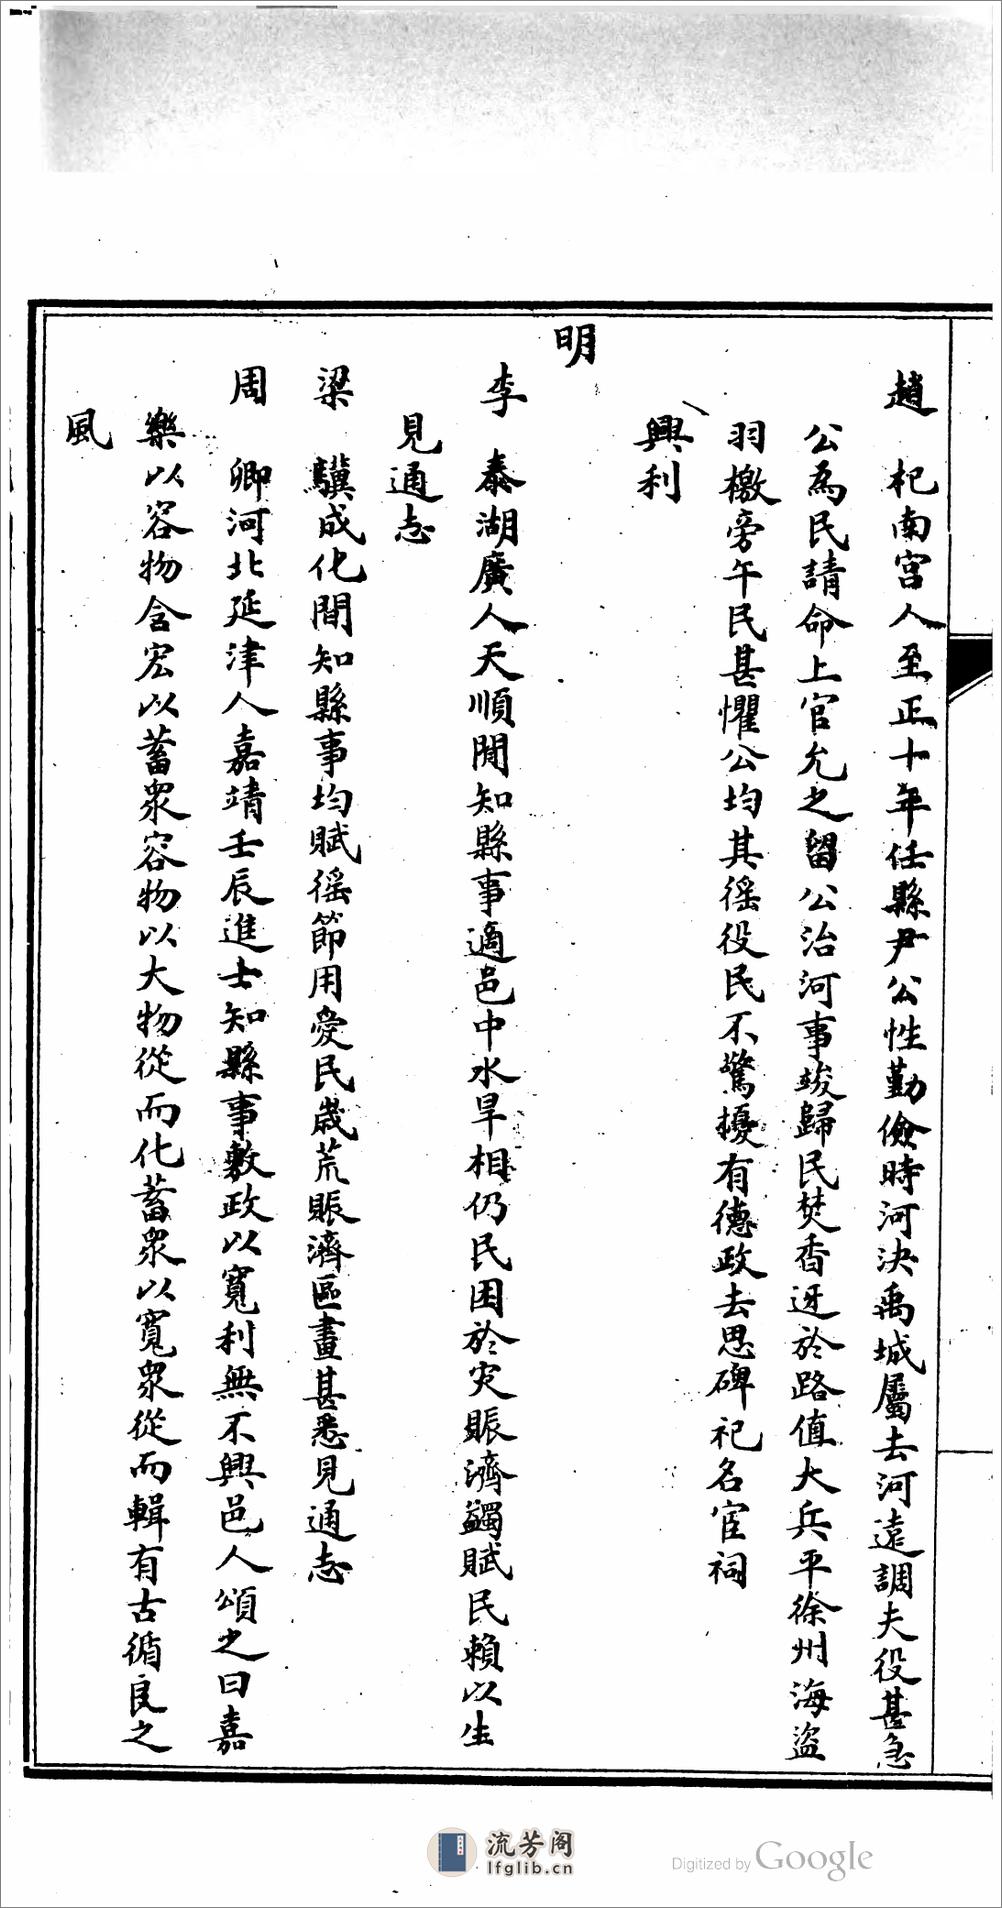 趙　杞南宮人至正十年任縣尹公性勤儉時河決禹城屬去河遠調夫役甚急
公為民請命上官允之留公治河事竣歸民焚香迓於路值大兵平徐州海盜
羽檄旁午民甚懼公均其徭役民不驚擾有德政去思碑祀名宦祠
興利
明
李　泰湖廣人天順間知縣事適邑中水旱相仍民困於灾賑濟蠲賦民賴以生
見通志
梁　驥成化間知縣事均賦徭節用愛民歲荒賑濟區畫甚悉見通志
周　卿河北延津人嘉靖壬辰進士知縣事敷政以寬利無不興邑人頌之曰嘉
樂以容物含宏以蓄眾容物以大物從而化蓄眾以寬眾從而輯有古循良之
風
流芳阁
lfglib.cn
Digitized by Google